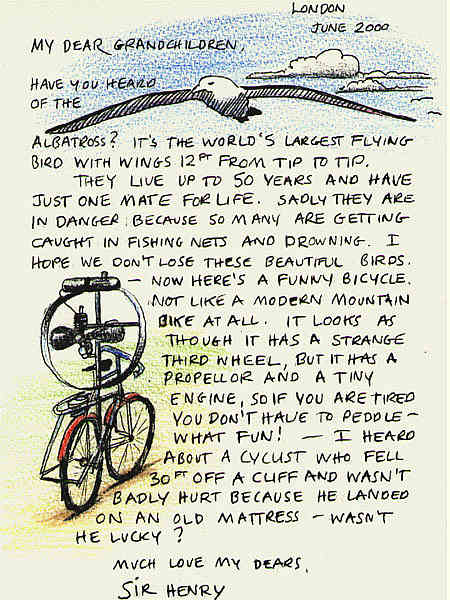 LONDON
JUNE 2000
MY DEAR GRANDCHILDREN,
HAVE YOU HEARD
OF THE
ALBATROSS? IT'S THE WORLD'S LARGEST FLYING
BIRD WITH WINGS 12FT FROM TIP TO TIP.
THEY LIVE UP TO 50 YEARS AND HAVE
JUST ONE MATE FOR LIFE. SADLY THEY ARE
IN DANGER BECAUSE SO MANY ARE GETTING
CAUGHT IN FISHING NETS AND DROWNING. I
HOPE WE DON'T LOSE THESE BEAUTIFUL BIRDS.
— NOW HERE'S A FUNNY BICYCLE.
NOT LIKE A MODERN MOUNTAIN
BIKE AT ALL. IT LOOKS AS
THOUGH IT HAS A STRANGE
THIRD WHEEL, BUT IT HAS A
PROPELLOR AND A TINY
ENGINE, SO IF YOU ARE TIRED
YOU DON'T HAVE TO PEDDLE –
WHAT FUN! — I HEARD
ABOUT A CYCLIST WHO FELL
30FT OFF A CLIFF AND WASN'T
BADLY HURT BECAUSE HE LANDED
ON AN OLD MATTRESS – WASN'T
HE LUCKY?
MUCH LOVE MY DEARS,
SIR HENRY